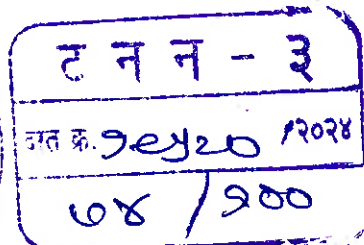 ट न न - ३
दस्त क्र. १९५२० /२०२४
७४ / १००